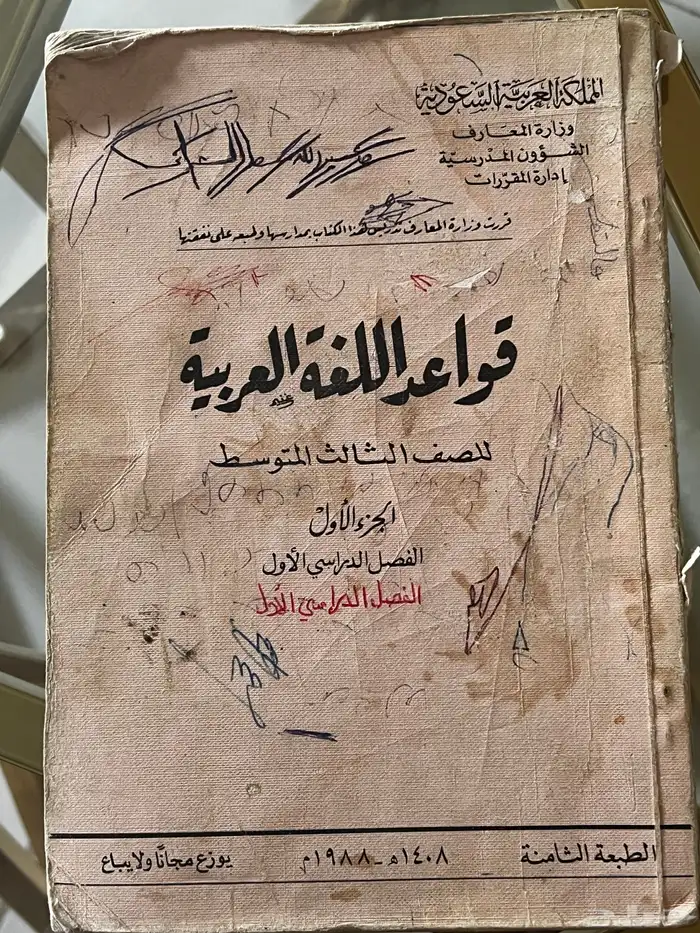 المملكة العربية السعودية
وزارة المعارف
الشؤون المدرسية
إدارة المقررات
قررت وزارة المعارف تدريس هذا الكتاب بمدارسها وطبعه على نفقتها
قواعد اللغة العربية
للصف الثالث المتوسط
الجزء الأول
الفصل الدراسي الأول
الفصل الدراسي الأول
الطبعة الثامنة ١٤٠٨هـ - ١٩٨٨م يوزع مجانًا ولايباع